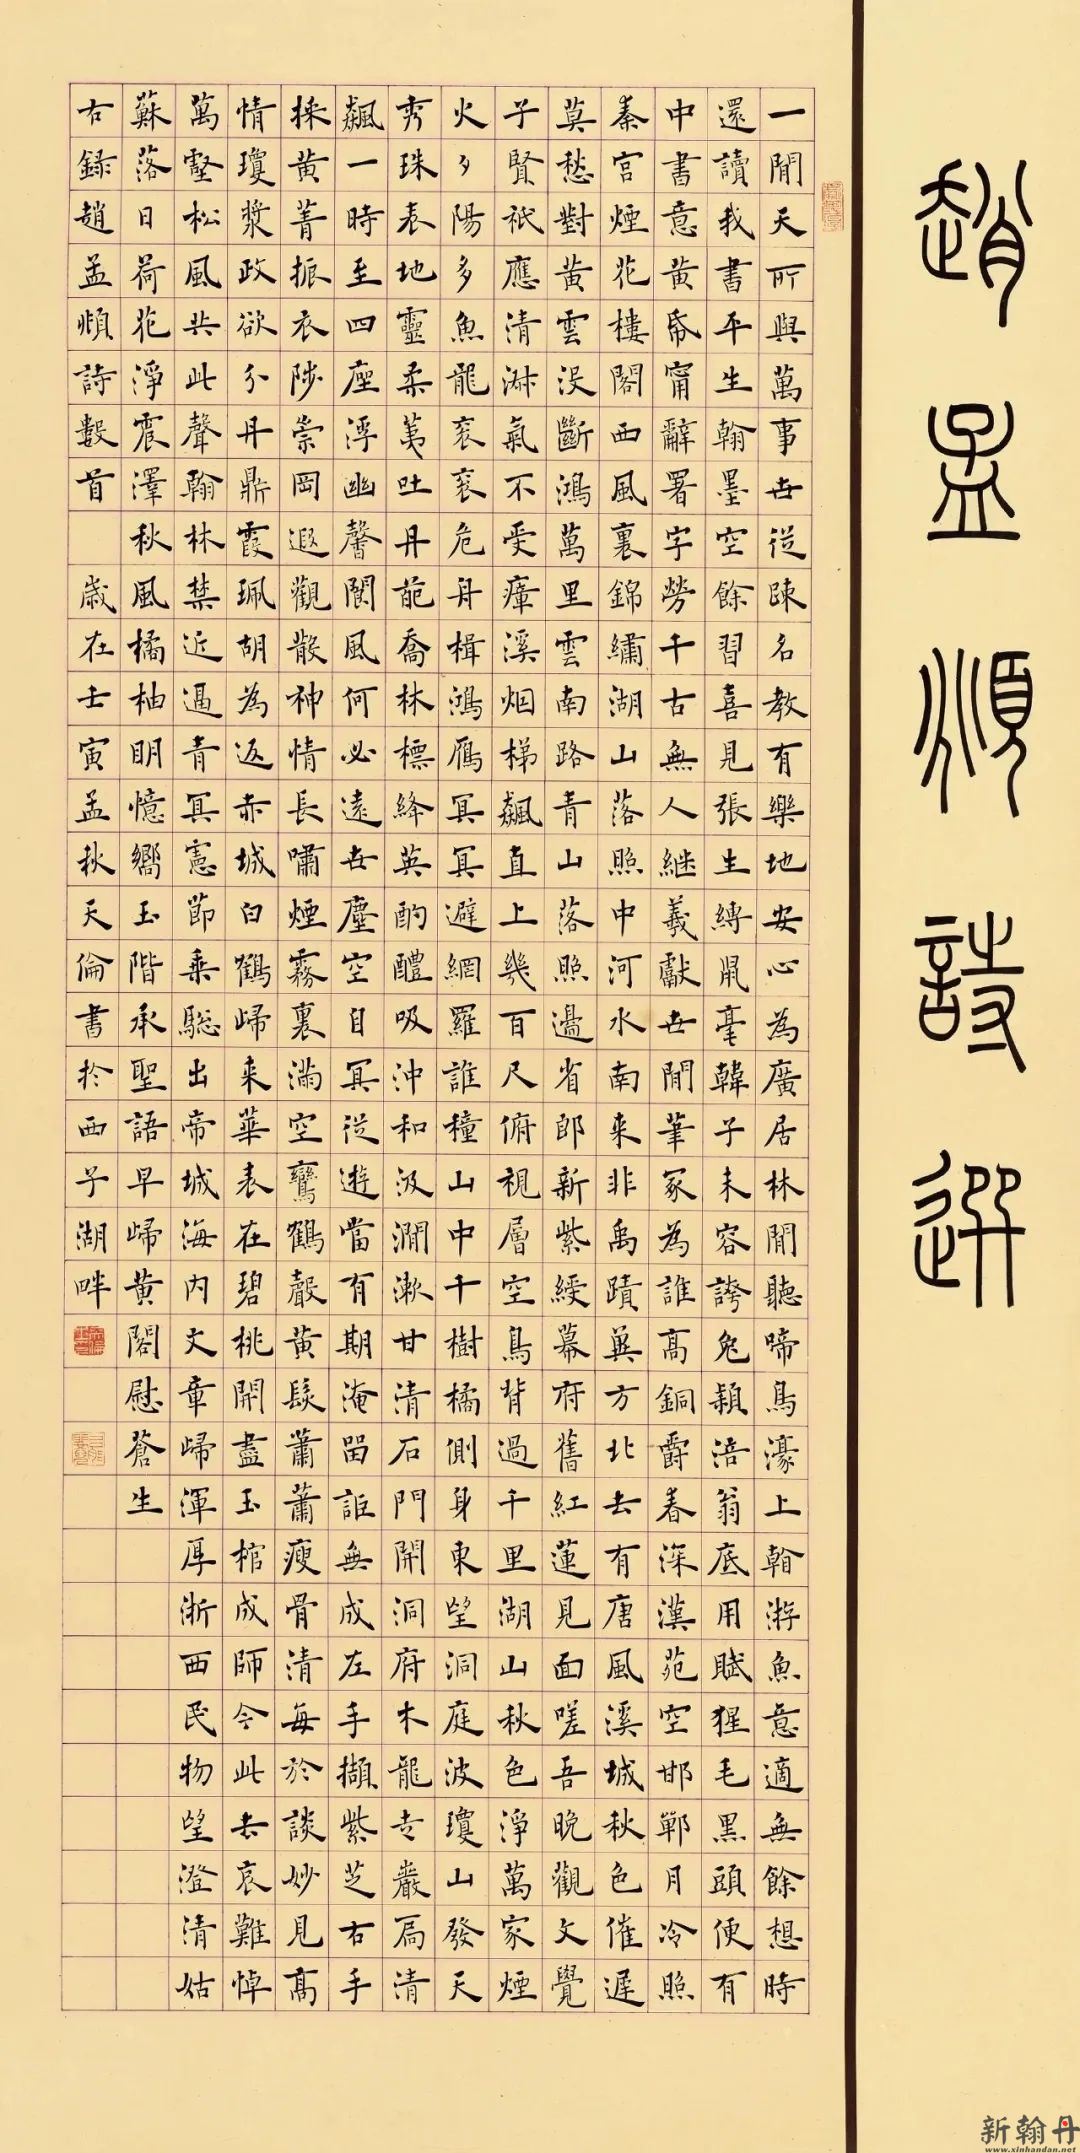 趙孟頫詩選
一閒天所與萬事世從踈名教有樂地安心為廣居林閒聽啼鳥濠上翰游魚意適無餘想時
還讀我書平生翰墨空餘習喜見張生縛鼠毫韓子未容誇兔穎涪翁底用賦猩毛黑頭便有
中書意黃昏甯辭署字勞千古無人繼羲獻世閒筆冢為誰高銅爵春深漢苑空邯鄲月冷照
秦宮煙花樓閣西風裏錦繡湖山落照中河水南來非禹蹟冀方北去有唐風溪城秋色催遲
莫愁對黃雲沒斷鴻萬里雲南路青山落照邊省郎新紫綬幕府舊紅蓮見面嗟吾晚觀文覺
子賢祇應清淋氣不受瘴溪烟梯飆直上幾百尺俯視層空鳥背過千里湖山秋色淨萬家煙
火夕陽多魚龍袞袞危舟楫鴻雁冥冥避網羅誰種山中千樹橘側身東望洞庭波瓊山發天
秀珠表地靈柔荑吐丹葩喬林標絳英酌醴吸沖和汲澗漱甘清石門開洞府木龍巖扃清
飆一時至四座浮幽馨閬風何必遠世塵空自冥從遊當有期淹留詎無成左手擷紫芝右手
採黃菁振衣陟崇岡遐觀散神情長嘯煙霧裏滿空鸞鶴聲黃髮蕭蕭瘦骨清每於談妙見高
情瓊漿政欲分丹鼎霞珮胡為返赤城白鶴歸來華表在碧桃開盡玉棺成師今此去哀難悼
萬壑松風共此聲翰林禁近逼青冥憲節乘驄出帝城海內文章歸渾厚浙西民物望澄清姑
蘇落日荷花淨震澤秋風橘柚明憶嚮玉階承聖語早歸黃閣慰蒼生
右錄趙孟頫詩數首 歲在壬寅孟秋天倫書於西子湖畔
新翰丹
www.xinhandan.net